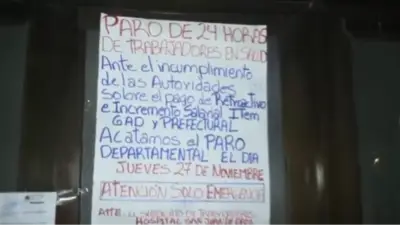 PARO DE 24 HORAS
DE TRABAJADORES EN SALUD
Ante el incumplimiento
de las Autoridades
sobre el pago de Retroactivo
e Incremento Salarial Item
GAD y PREFECTURAL
Acatamos el PARO
DEPARTAMENTAL EL DIA
JUEVES 27 DE NOVIEMBRE
ATENCIÓN SOLO EMERGENCIA
ATTE
HOSPITAL SAN JUAN DE DIOS